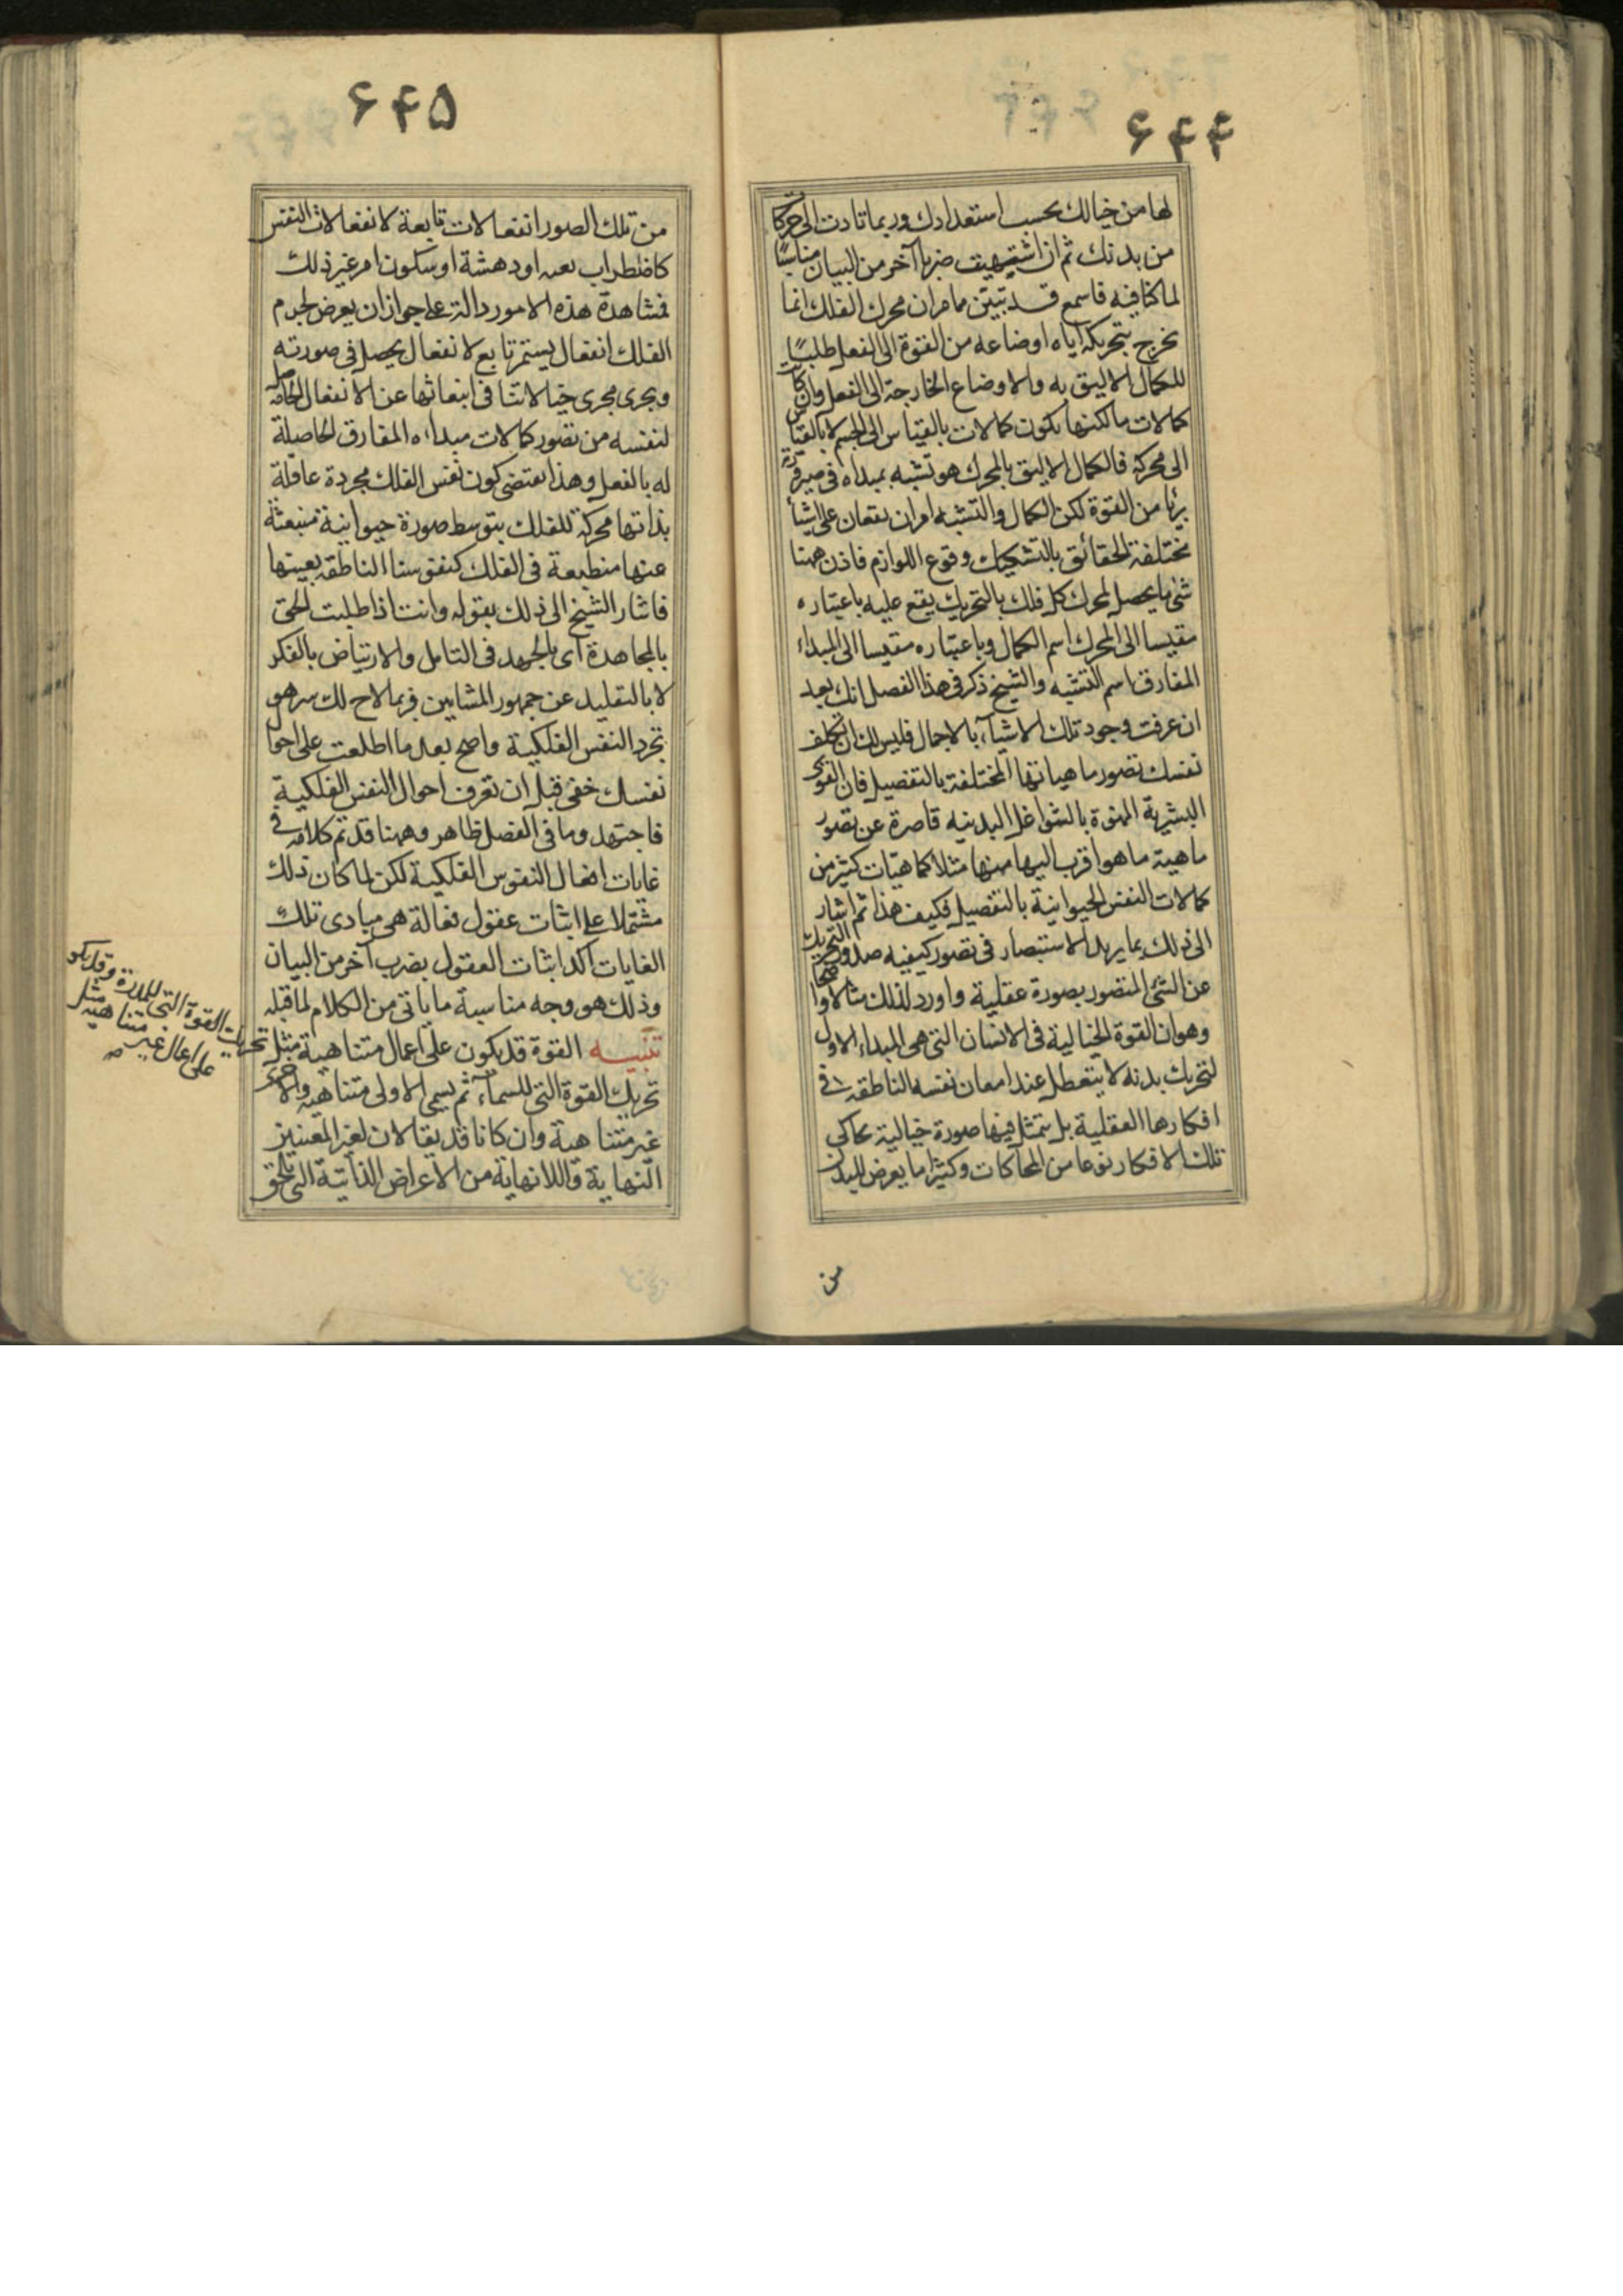 ۶۴۴
لها من خيالك بحسب استعدادك وربما تادت الى حركات
من بدنك ثم ان اشتهيت ضربا آخر من البيان مناسبًا
لما كنا فيه فاسمع قد تبيّن مما مر ان محرك الفلك انما
يخرج بتحريكه اياه اوضاعه من القوة الى الفعل طلبًا
للكمال الاليق به والاوضاع الخارجة الى الفعل وان كانت
كمالات ما لكنها يكون كمالات بالقياس الى الجسم لا بالقياس
الى محركه فالكمال الاليق بالمحرك هو تشبه بمبداه فى صيرورته
بريًا من القوة لكن الكمال والتشبه امران يقعان على اشيأ
مختلفة الحقائق بالتشكيك وقوع اللوازم فاذن ههنا
شئ ما يحصل لمحرك كل فلك بالتحريك يقع عليه باعتباره
مقيسا الى المحرك اسم الكمال وباعتباره مقيسا الى المبداء
المفارق اسم التشبه والشيخ ذكر فى هذا الفصل انك بعد
ان عرفت وجود تلك الاشيآء بالاجمال فليس لك ان تكلف
نفسك تصور ماهياتها المختلفة بالتفصيل فان القوى
البشرية الممنوة بالشواغل البدنيه قاصرة عن تصور
ماهية ما هو اقرب اليها منها مثلا كماهيّات كثير من
كمالات النفس الحيوانية بالتفصيل فكيف هذا ثم اشار
الى ذلك بما يريد الاستبصار فى تصور كيفيه صدور التحريك
عن الشئ المتصور بصورة عقلية واورد لذلك مثالا واضحا
وهو ان القوة الخيالية فى الانسان التى هى المبداء الاول
لتحريك بدنه لا يتعطل عند امعان نفسه الناطقه فى
افكارها العقلية بل يتمثل فيها صورة خيالية يحاكى
تلك الافكار نوعا من المحاكات وكثيرًا ما يعرض للبدن
من
۶۴۵
من تلك الصور انفعالات تابعة لانفعالات النفس
كاضطراب يعبه او دهشة او سكون امر غير ذلك
فمشاهدة هذه الامور دالة على جواز ان يعرض لجرم
الفلك انفعال يستمر تابع لانفعال يحصل فى صورته
ويجرى مجرى خيالاتنا فى انبعاثها عن الانفعال الحاصل
لنفسه من تصور كمالات مبداءه المفارق الحاصلة
له بالفعل وهذا يقتضى كون نفس الفلك مجردة عاقلة
بذاتها محركة للفلك بتوسط صورة حيوانية منبعثة
عنها منطبعة فى الفلك كنفوسنا الناطقه بعينها
فاشار الشيخ الى ذلك بقوله وانت اذا طلبت الحق
بالمجاهدة اى بالجهد فى التامل والارتياض بالفكر
لا بالتقليد عن جمهور المشايين فربما لاح لك سر هو
تجرد النفس الفلكية واضح بعد ما اطلعت على احوال
نفسك خفى قبل ان تعرف احوال النفس الفلكية
فاجتهد وما فى الفصل ظاهر وههنا قد تم كلامه فى
غايات افعال النفوس الفلكية لكن لما كان ذلك
مشتملا على اثبات عقول فعالة هى مبادى تلك
الغايات اكد اثبات العقول بضرب آخر من البيان
وذلك هو وجه مناسبة ما ياتى من الكلام لما قبله
تنبيه القوة قد يكون على اعمال متناهية مثل
تحريك القوة التى للمدرة وقد يكون
على اعمال غير متناهية مثل
تحريك القوة التى للسماء ثم يسمى الاولى متناهيه والاخرى
غير متناهية وان كانا قد يقالان لغير المعنيين
النهاية واللانهاية من الاعراض الذاتية التى تلحق